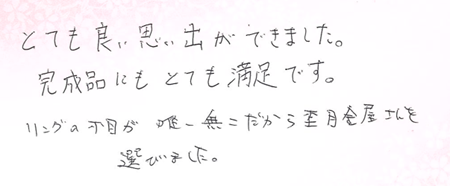 とても良い思い出ができました。
完成品にもとても満足です。
リングの木目が唯一無二だから杢目金屋さんを
選びました。